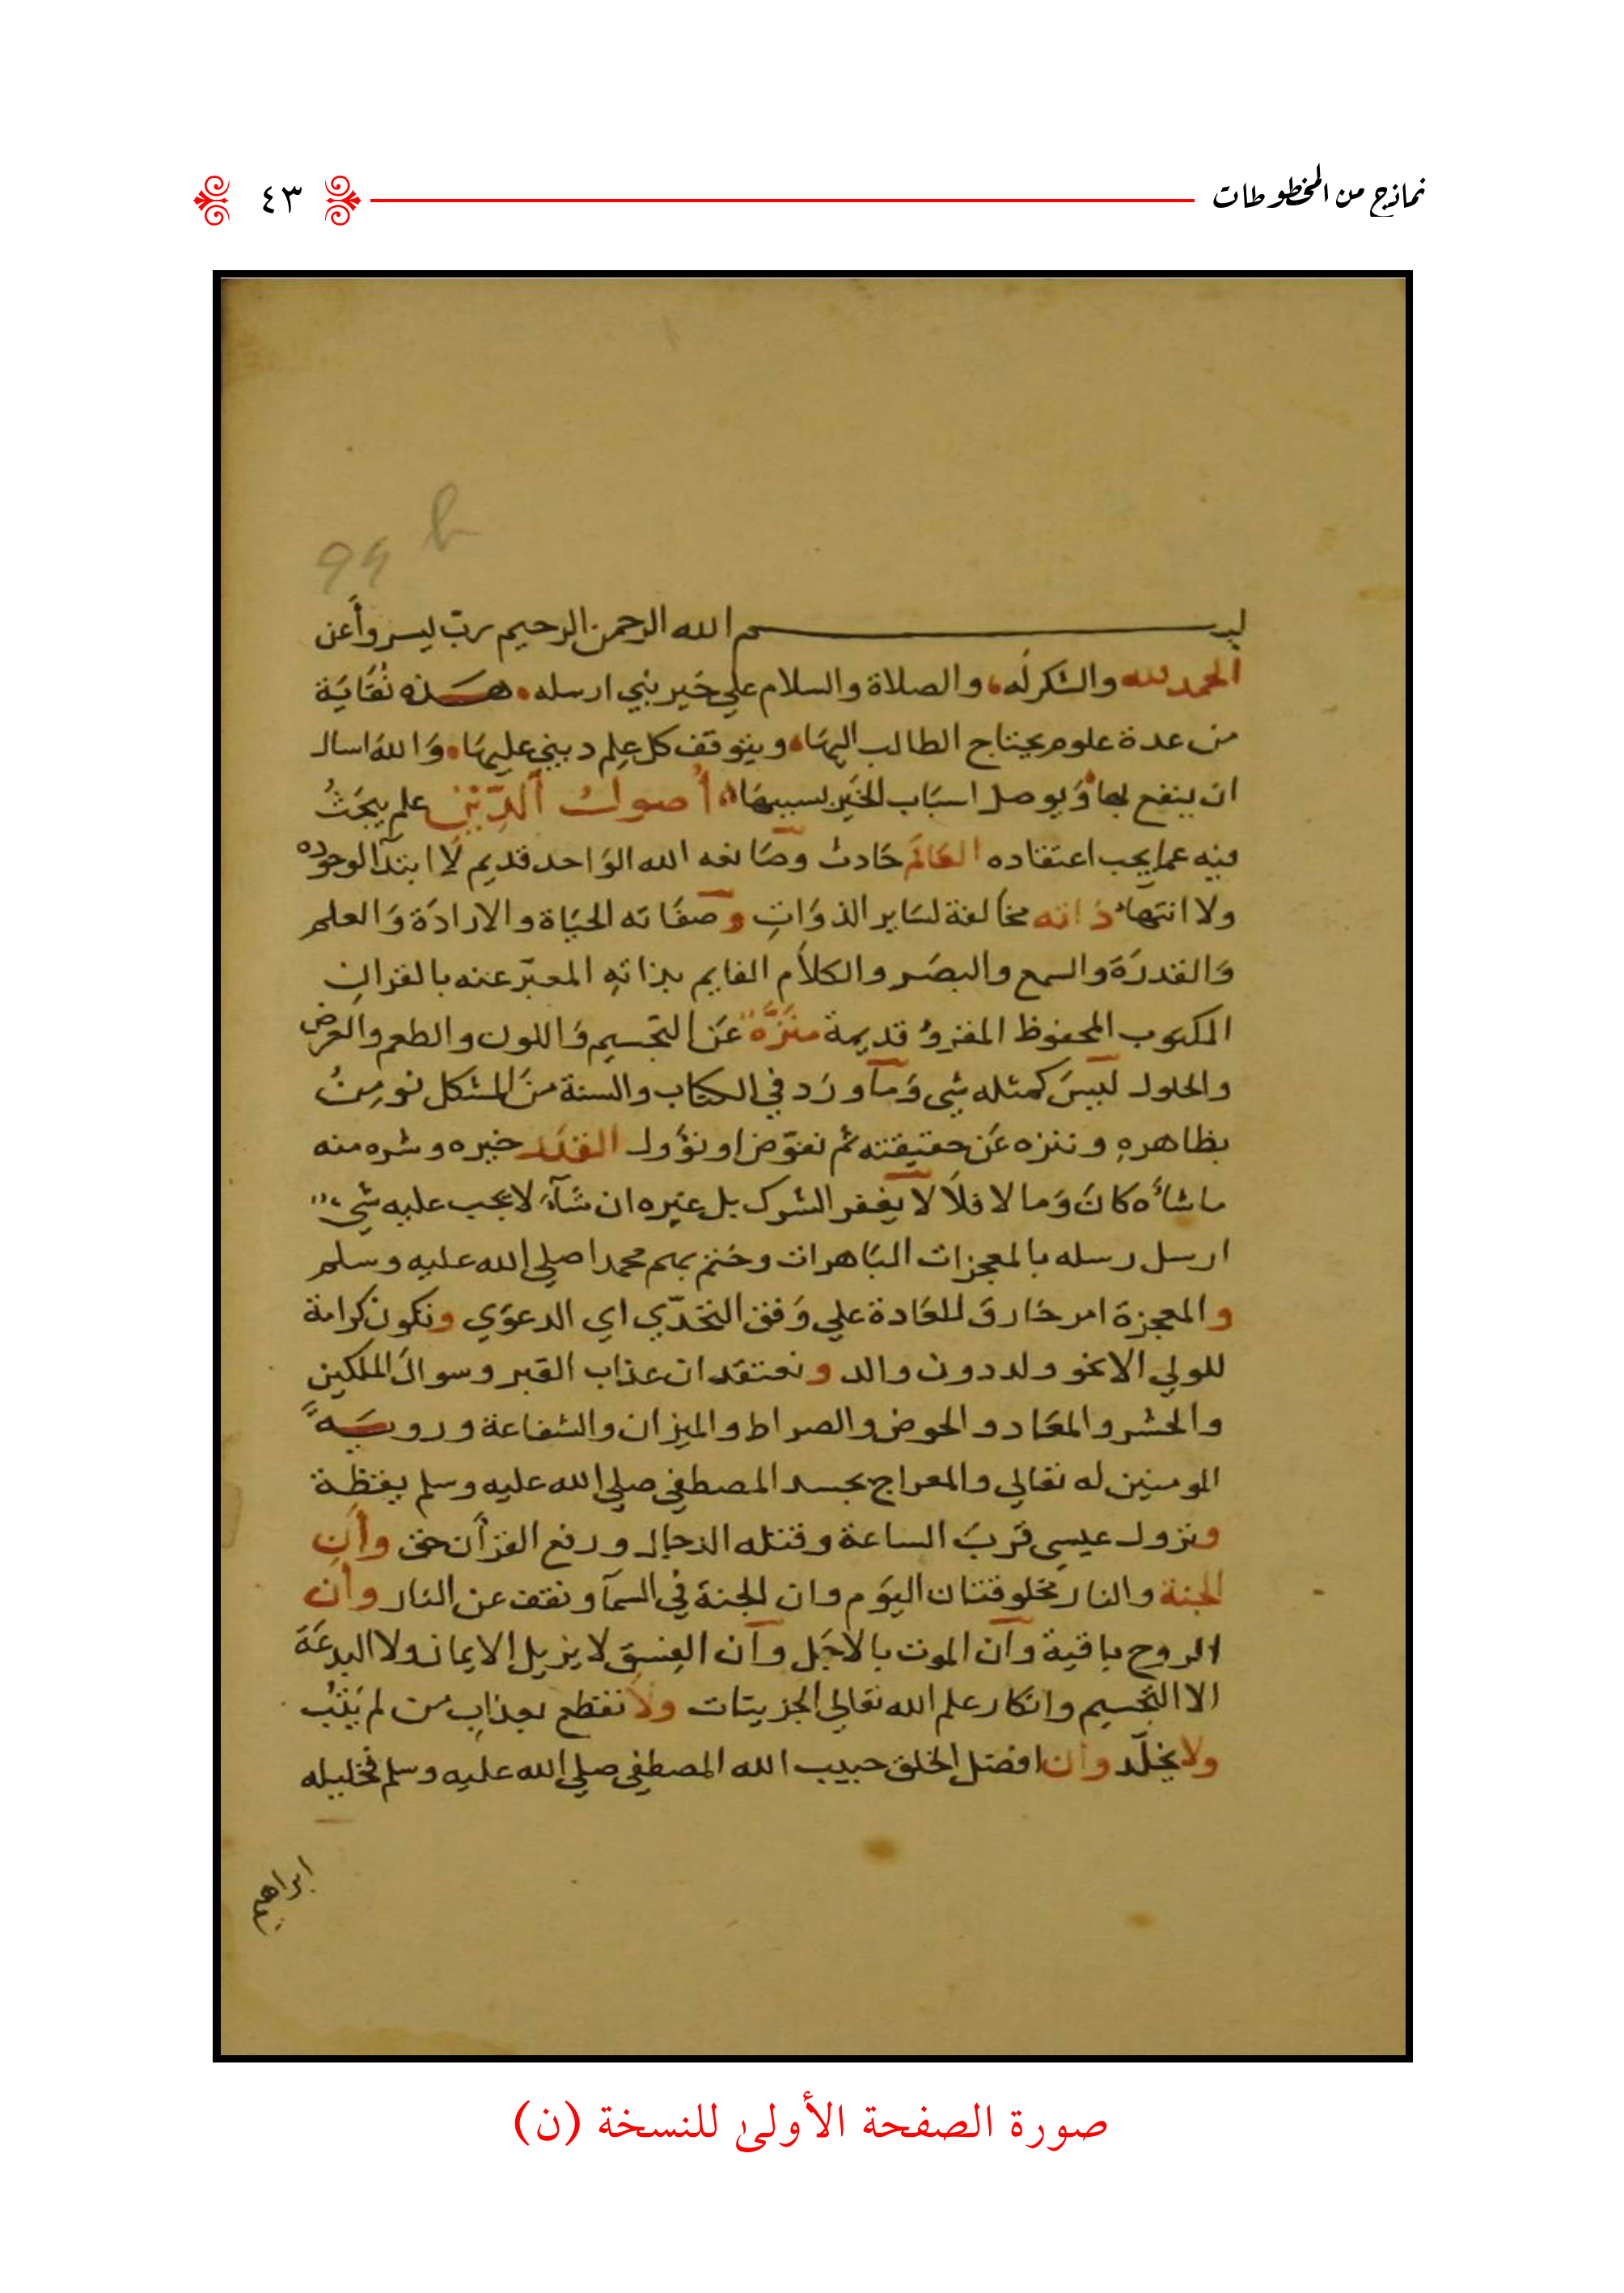 نماذج من المخطوطات
٤٣
94 b
بسم الله الرحمن الرحيم رب يسر وأعن
الحمد لله والشكر له، والصلاة والسلام علي خير نبي ارسله، هذه نُقَايَة
من عدة علوم يحتاج الطالب اليها، ويتوقف كل علم ديني عليها، وَاللهَ اسال
ان ينفع بها وَيوصل اسبَاب الخير بسببهَا، أُصولُ الدِّيْنِ علم يبحَثُ
فيه عما يجب اعتقاده العَالَم حَادث وصَانعه الله الوَاحد قديم لا ابتدآ لوجوده
ولا انتهاء ذاته مخالفة لسَاير الذوَاتِ وصفَاته الحيَاة والارادَة وَالعلم
وَالقدرَة والسمع والبصَر والكلَام القايم بذاتهِ المعبّر عنه بالقران
المكتوب المحفوظ المقروُ قديمة منَزَّهٌ عَن التجسيم وَاللون والطعم والعرض
والحلول ليسَ كمثله شي وَمآ ورَد في الكتاب والسنة منَ المشكل نومِنُ
بظاهرهِ وننزه عَن حقيقته ثم نفوّض او نؤول القدَر خيره وشره منه
ما شاءَه كانَ وَما لا فلَا لا يغفر الشرك بل غيره ان شَآءَ لا يجب عليه شي
ارسل رسله بالمعجزات البَاهرات وختم بهم محمدا صلي الله عليه وسلم
والمعجزة امر خَارق للعَادة علي وَفق التحَدّي اي الدعوَي وتكون كرامة
للولي الا نحو ولد دون والد ونعتقد ان عذاب القبر وسوال الملكين
والحشر والمعَاد والحوض والصراط والميزان والشفاعة ورويَة
المومنين له تعالي والمعراج بجسد المصطفي صلي الله عليه وسلم يقظة
ونزول عيسي قربَ الساعة وقتله الدجال ورفع القرأن حق وأن
الجنة والنار مخلوقتان اليوَم وان الجنة في السمآ ونقف عن النار وأن
الروح باقية وأن الموت بالاجَل وأن الفِسقَ لا يزيل الايمان ولا البدعَة
الا التجسيم وانكار علم الله تعالي الجزييات ولا نقطع بعذابِ من لم يَتُبْ
ولا يخلّد وأن افضل الخلق حبيب الله المصطفي صلي الله عليه وسلم فخليله
ابراهيم
صورة الصفحة الأولىٰ للنسخة (ن)